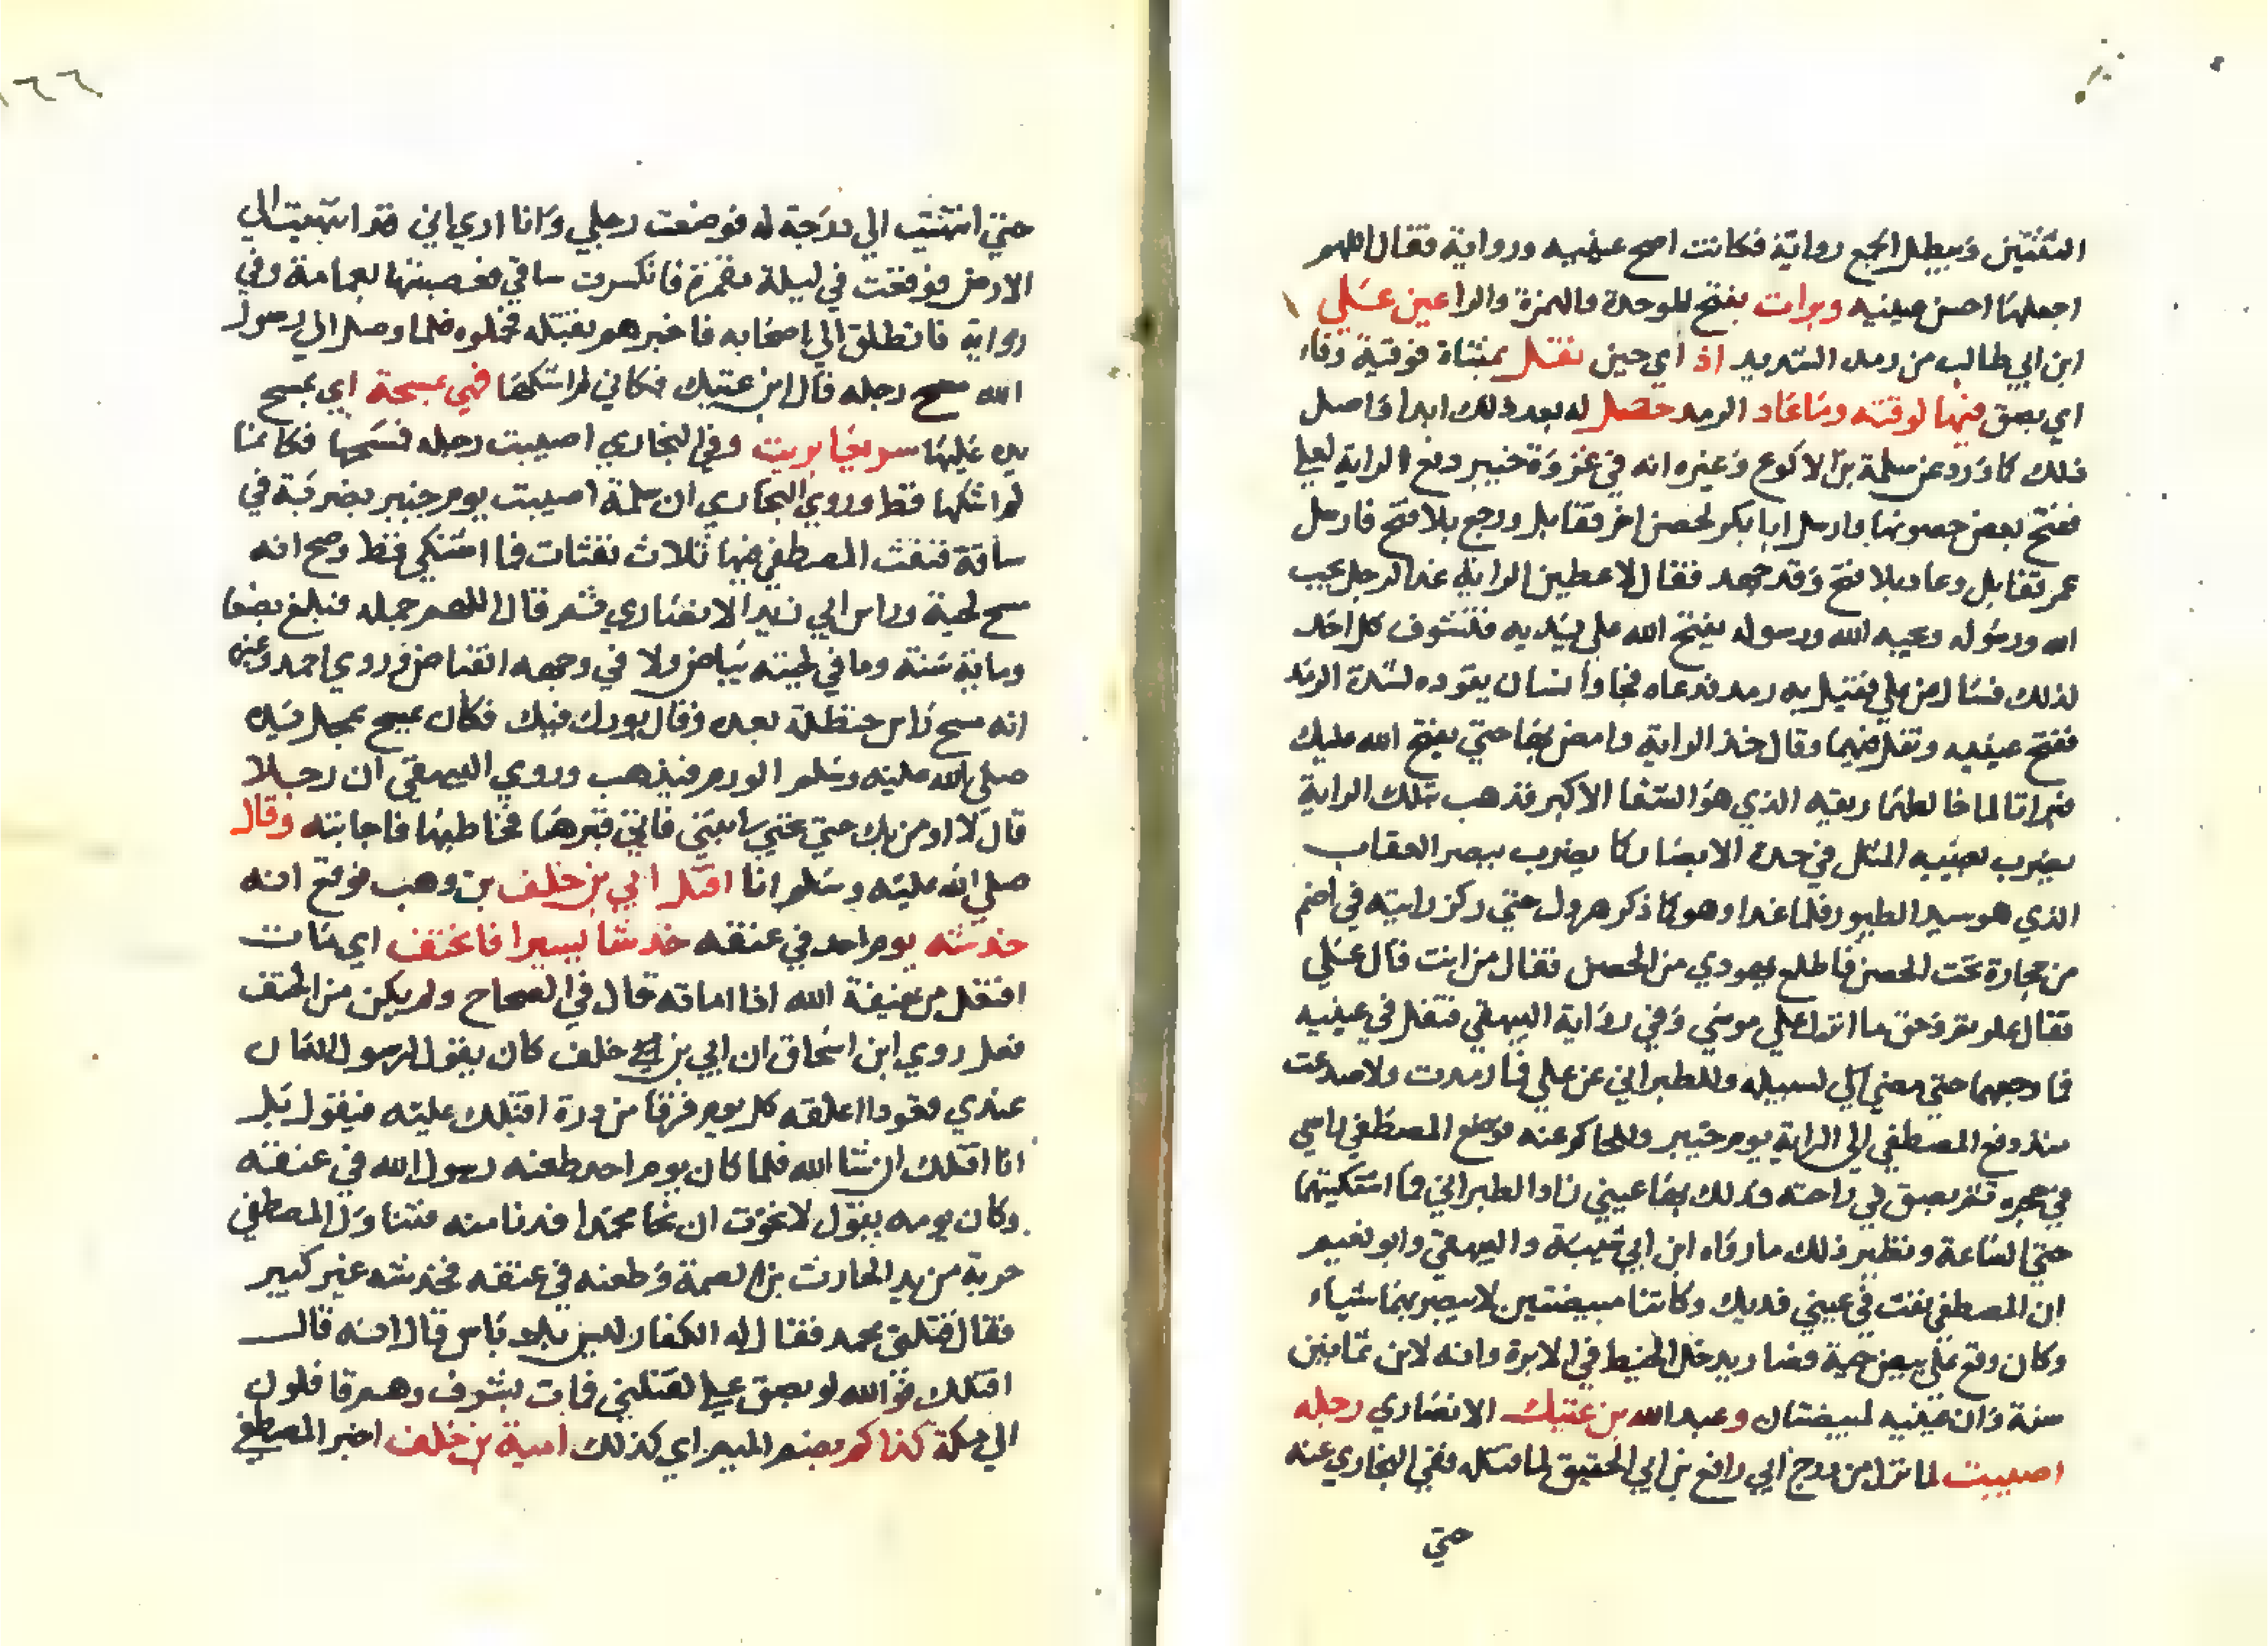 الثنتين ويبطل الجمع رواية فكانت اصح عينيه ورواية فقال اللهم
اجعلها احسن عينيه وبرات بفتح الموحدة والهمزة والرا عين علي
ابن ابي طالب من رمد الشديد اذ اي حين تفتل بمثناة فوقية وفاء
اي بصق فيها لوقته وما عاد الرمد حصل له بعد ذلك ابدا فاصل
ذلك كما ورد عن سلمة بن الاكوع وغيره انه في غزوة خيبر دفع الراية لعلي
ففتح بعض حصونها وارسل ابا بكر لحصن اخر فقاتل ورجع بلا فتح فارسل
عمر فقاتل وعاد بلا فتح وقد جهد فقال لاعطين الراية غدا لرجل يحب
الله ورسوله ويحبه الله ورسوله يفتح الله على يديه فتشوف كل احد
لذلك فسال عن علي فقيل به رمد فدعاه فجاء وانسان يقوده لشدة الرمد
ففتح عينيه وتفل فيهما وقال خذ الراية وامض بها حتى يفتح الله عليك
فبراتا لما خالطهما ريقه الذي هو الشفا الاكبر فذهب بتلك الراية
يضرب بعينيه المثل في حدة الابصار كما يضرب ببصر العقاب
الذي هو سيد الطيور فلما غدا وهو كما ذكر هرول حتى ركز رايته في اضم
من حجارة تحت الحصن فاطلع يهودي من الحصن فقال من انت قال علي
فقال علوتم وحق ما انزل علي موسى وفي رواية البيهقي فتفل في عينيه
فما وجعهما حتى مضى اي لسبيله وللطبراني عن علي فما رمدت ولا صدعت
منذ دفع المصطفي الي الراية يوم خيبر وللحاكم عنه فوضع المصطفي راسي
في حجره ثم بصق في راحته فدلك بها عيني زاد الطبراني فما اشتكيتهما
حتى الساعة ونظير ذلك ما رواه ابن ابي شيبة والبيهقي وابو نعيم
ان المصطفى نفث في عيني فديك وكانتا مبيضتين لا يبصر بهما شياء
وكان وقع على بيض حية فصار يدخل الخيط في الابرة وانه لابن ثمانين
سنة وان عينيه لمبيضتان وعبد الله بن عتيك الانصاري رجله
اصيبت لما نزل من درج ابي رافع بن ابي الحقيق لما قتله ففي البخاري عنه
حتي
حتي انتهيت الي درجة له فوضعت رجلي وانا اري اني قد انتهيت الي
الارض فوقعت في ليلة مقمرة فانكسرت ساقي فعصبتها بعمامة وفي
رواية فانطلق الي اصحابه فاخبرهم بقتله فحملوه فلما وصل الي رسول
الله مسح رجله قال ابن عتيك فكاني لم اشتكها فهي بمسحة اي بمسح
يده عليها سريعا بريت وفي البخاري اصيبت رجله فمسحها فكانما
لم اشكها قط وروي البخاري ان سلمة اصيبت يوم خيبر بضربة في
ساقه فنفث المصطفي فيها ثلاث نفثات فما اشتكي قط وصح انه
مسح لحية وراس ابي زيد الانصاري ثم قال اللهم جمله فبلغ بضعا
وماية سنة وما في لحيته بياض ولا في وجهه انقباض وروي احمد وغيره
انه مسح راس حنظلة بيده وقال بورك فيك فكان يمسح بمحل يد
صلي الله عليه وسلم الورم فيذهب وروي البيهقي ان رجلا
قال لا اومن بك حتي تحيي لي ابنتي فاتى قبرها فخاطبها فاجابته وقال
صلي الله عليه وسلم انا اقتل ابي بن خلف بن وهب فوقع انه
خدشه يوم احد في عنقه خدشا يسيرا فانحتف اي مات
افتعل من حتيفة الله اذا اماته قال في الصحاح ولم يكن من الحتف
فعل روي ابن اسحاق ان ابي بن خلف كان يقول لرسول الله ان
عندي قعودا اعلقه كل يوم فرقا من ذرة اقتلك عليه فيقول بل
انا اقتلك ان شا الله فلما كان يوم احد طعنه رسول الله في عنقه
وكان يومه يقول لا نجوت ان نجا محمدا فدنا منه فتناول المصطفي
حربة من يد الحارث بن الصمة وطعنه في عنقه فخدشه غير كبير
فقال قتلني محمد فقال له الكفار ليس بك باس قال انه قال
اقتلك فوالله لو بصق علي لقتلني فمات بشرف وهم قافلون
الي مكة كذاكم بضم الميم اي كذلك امية بن خلف اخبر المصطفي